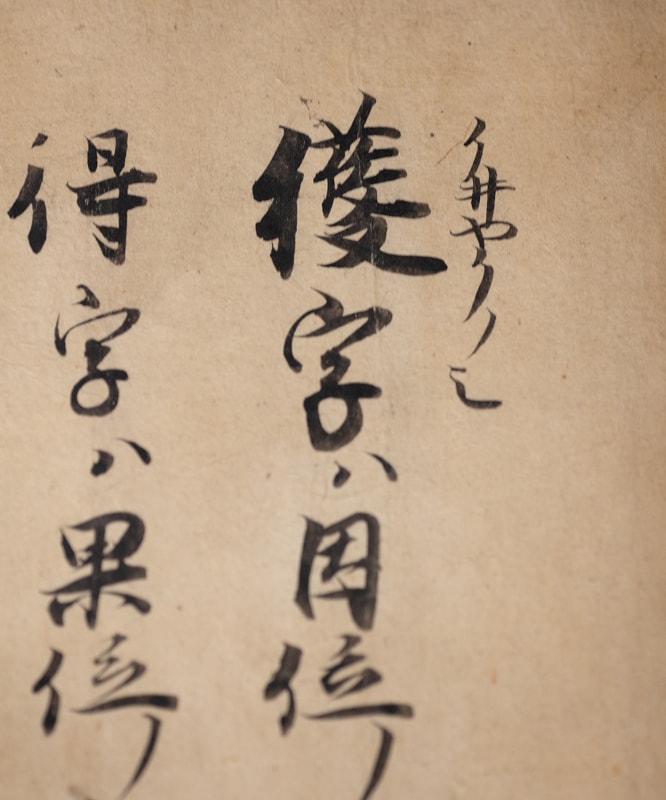 獲字ハ因位ノ
得字ハ果位ノ